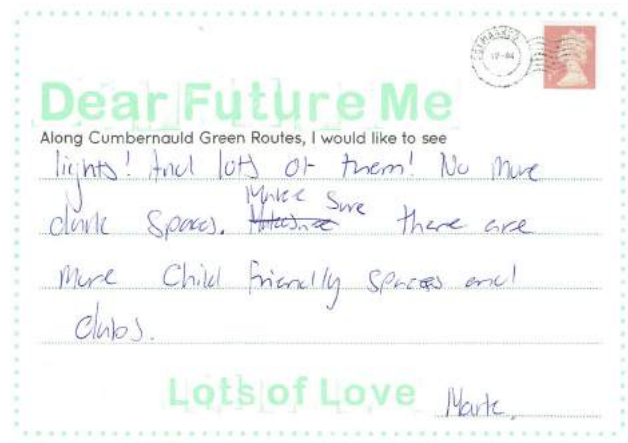 Dear Future Me
Along Cumbernauld Green Routes, I would like to see
lights! And lots of them! No more
dark spaces. Make sure there are
more child friendly spaces and
clubs.
Lots of Love Mark.